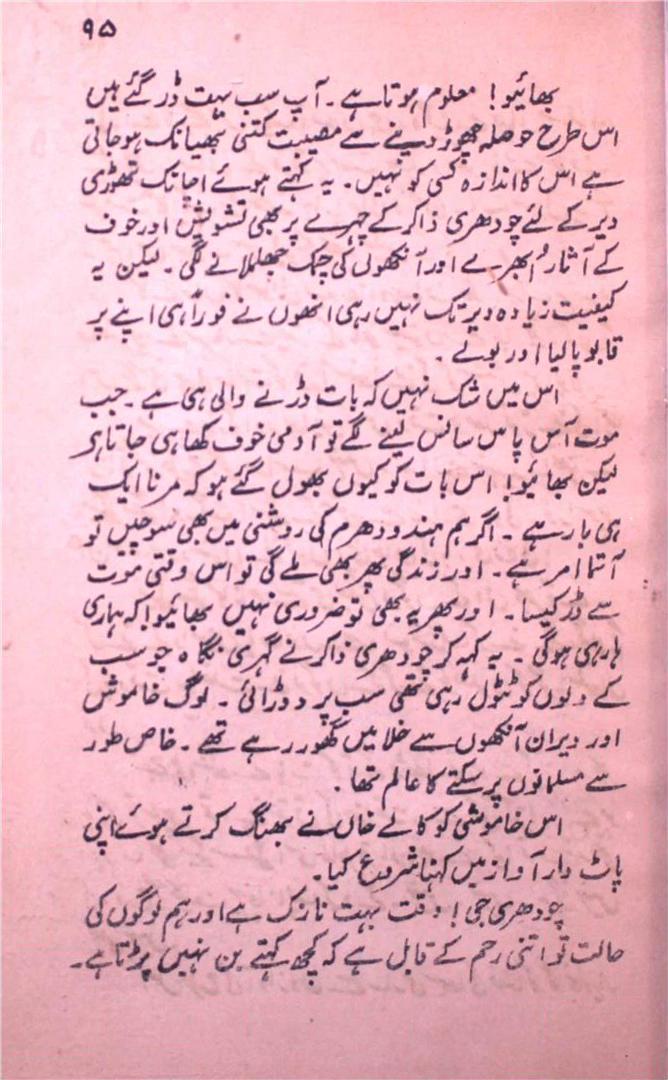 ۹۵
بھائیو! معلوم ہوتا ہے۔ آپ سب بہت ڈر گئے ہیں
اس طرح حوصلہ چھوڑ دینے سے مصیبت کتنی بھیانک ہو جاتی
ہے اس کا اندازہ کسی کو نہیں۔ یہ کہتے ہوئے اچانک تھوڑی
دیر کے لئے چودھری ذاکر کے چہرے پر بھی تشویش اور خوف
کے آثار اُبھرے اور آنکھوں کی چمک جھلملانے لگی۔ لیکن یہ
کیفیت زیادہ دیر تک نہیں رہی انھوں نے فوراً ہی اپنے پر
قابو پا لیا اور بولے۔
اس میں شک نہیں کہ بات ڈرنے والی ہی ہے۔ جب
موت آس پاس سانس لینے لگے تو آدمی خوف کھا ہی جاتا ہے
لیکن بھائیو! اس بات کو کیوں بھول گئے ہو کہ مرنا ایک
ہی بار ہے۔ اگر ہم ہندو دھرم کی روشنی میں بھی سوچیں تو
آتما امر ہے۔ اور زندگی پھر بھی ملے گی تو اس وقتی موت
سے ڈر کیسا۔ اور پھر یہ بھی تو ضروری نہیں بھائیو! کہ ہماری
ہار ہی ہوگی۔ یہ کہہ کر چودھری ذاکر نے گہری نگاہ جو سب
کے دلوں کو ٹٹول رہی تھی سب پر دوڑائی۔ لوگ خاموش
اور ویران آنکھوں سے خلا میں گھور رہے تھے۔ خاص طور
سے مسلمانوں پر سکتے کا عالم تھا۔
اس خاموشی کو کالے خاں نے بھنگ کرتے ہوئے اپنی
پاٹ دار آواز میں کہنا شروع کیا۔
چودھری جی! وقت بہت نازک ہے اور ہم لوگوں کی
حالت تو اتنی رحم کے قابل ہے کہ کچھ کہتے بن نہیں پڑتا ہے۔